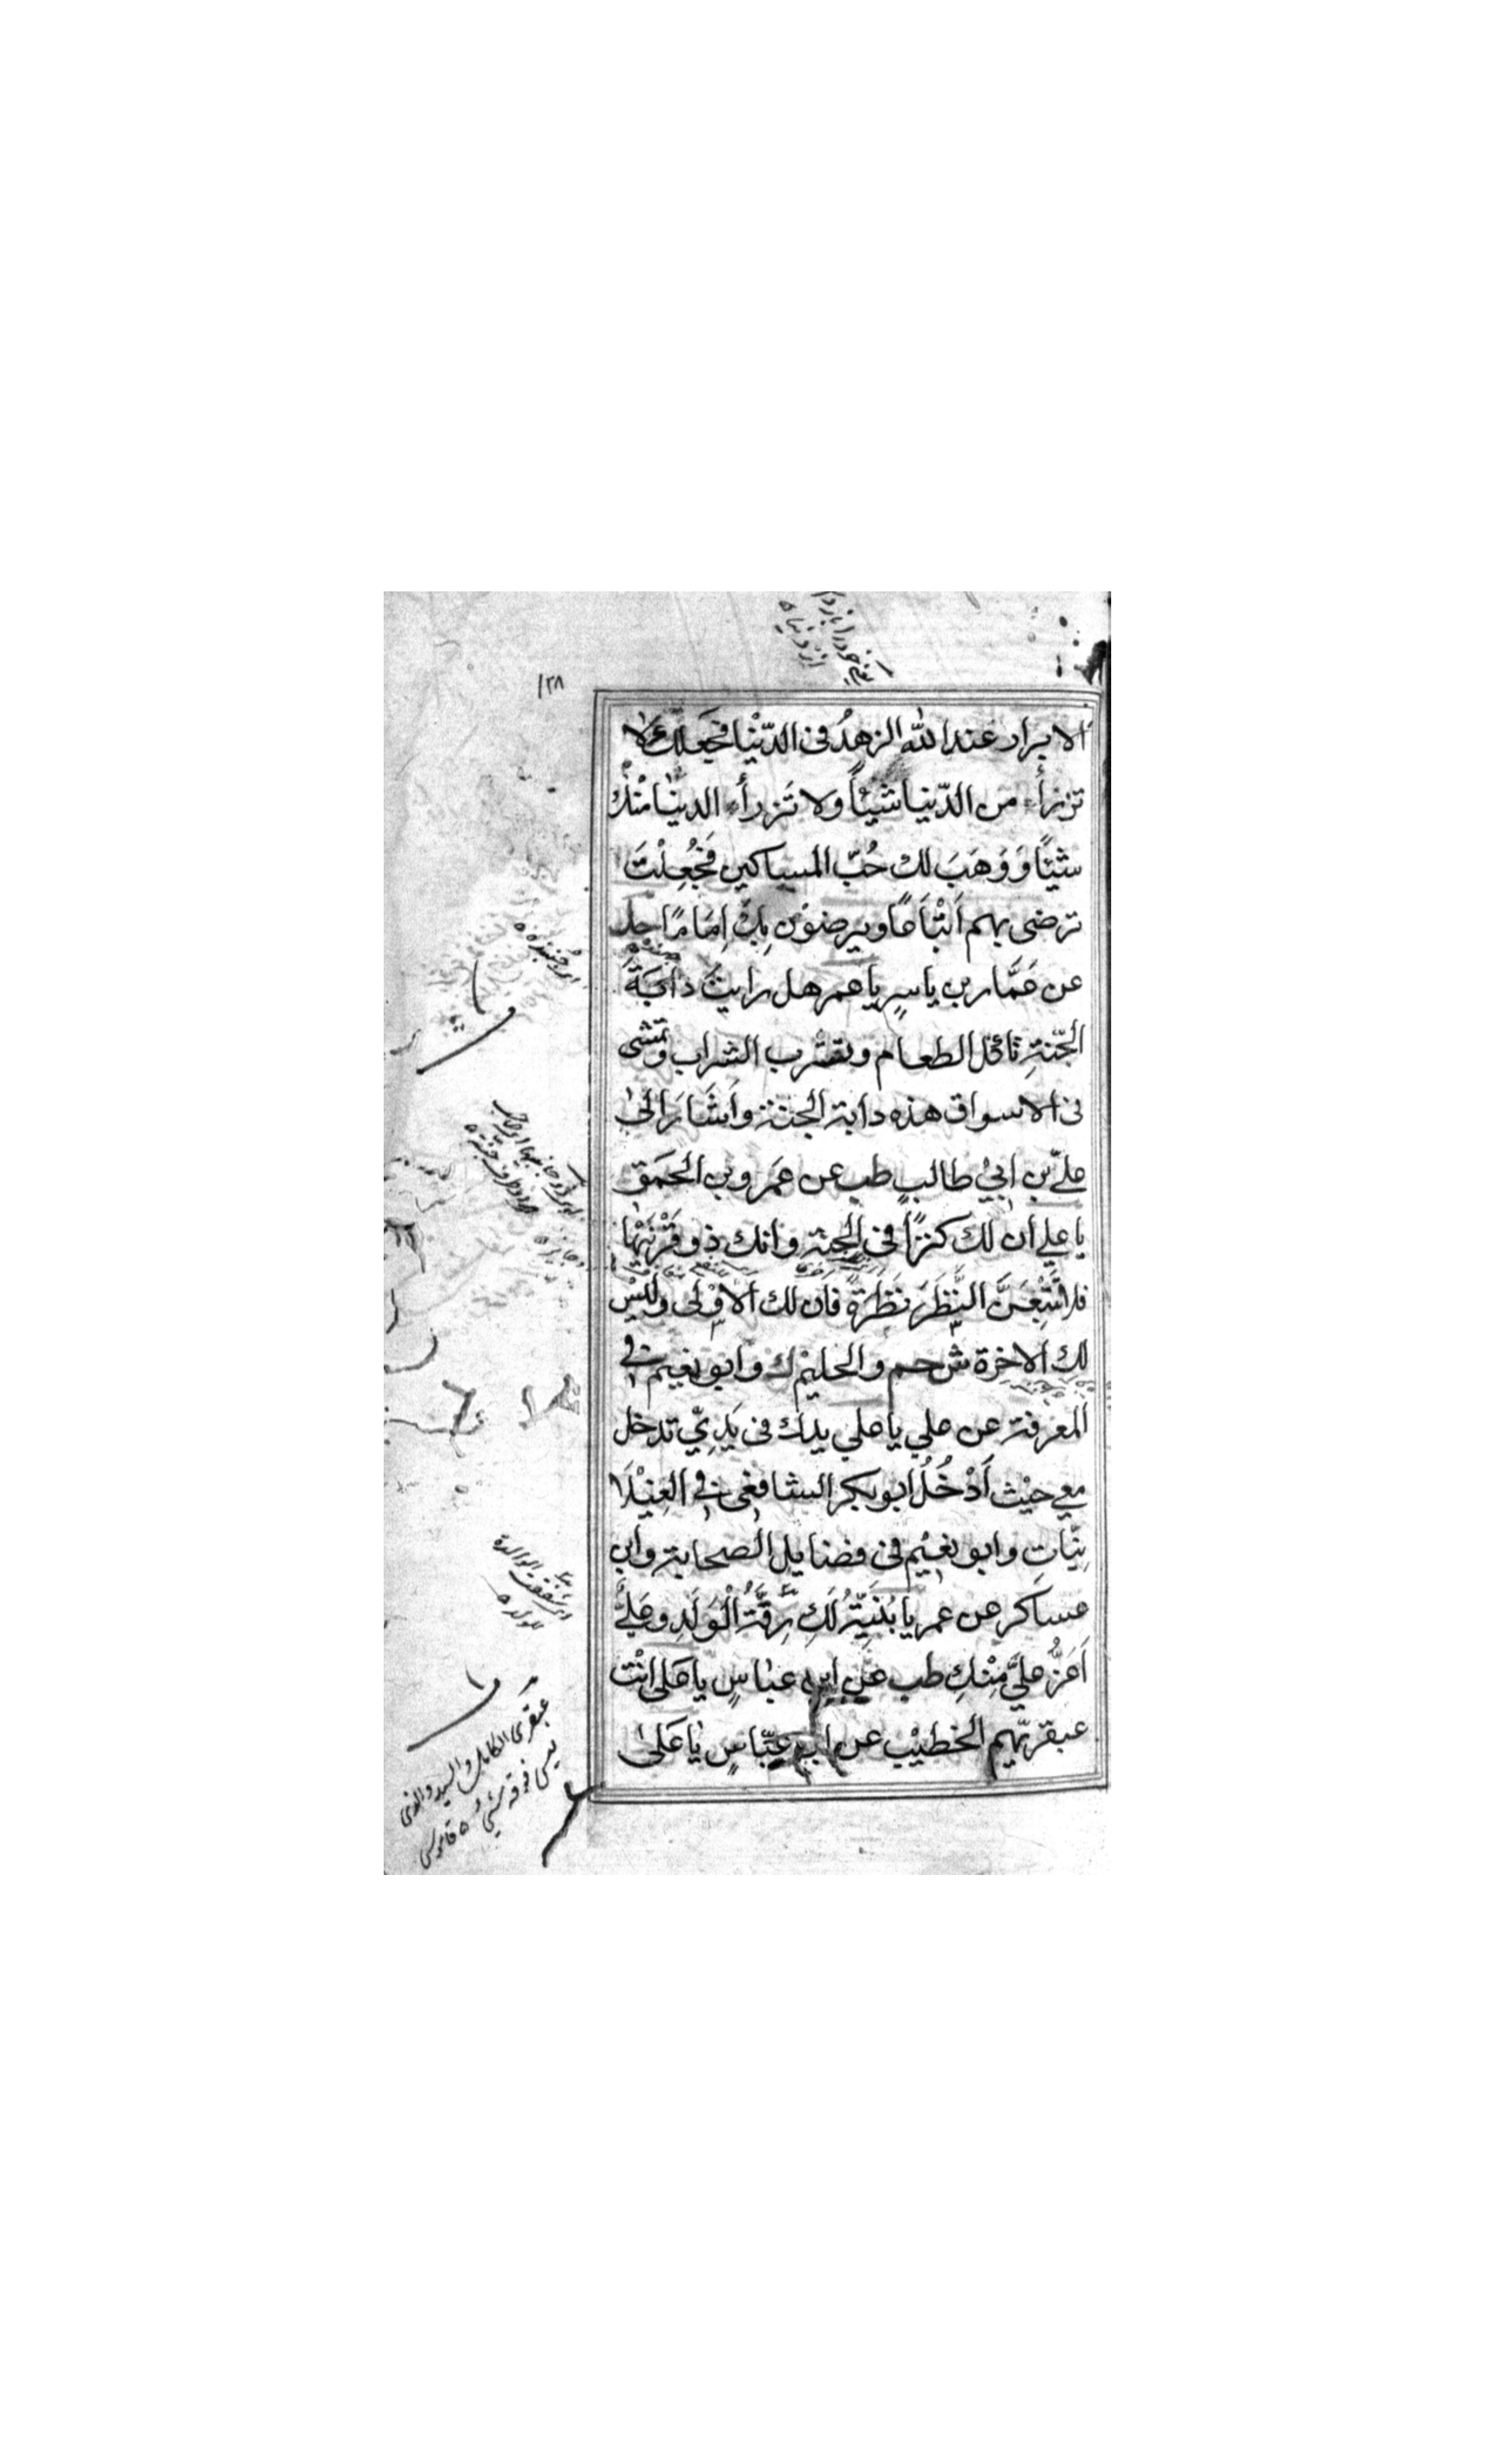 ١٢٨
الابرار عند الله الزهد فى الدّنْيا فجَعلَك لا
ترزأ من الدّنيا شيئاً ولا تَرزأ الدينا منْك
شيئًا وَوَهَبَ لك حُبّ المساكين فجُعِلْتَ
ترضى بهم اَتْبَاعًا ويرضوْن بِكَ اِمَامًا حل
عن عَمَّار بن ياسِرٍ يا عمر هل رايتَ دابَةَ
الجّنةِ تاكل الطعام وتشرب الشراب وتمشى
فى الاسواق هذه دابة الجنة واَشَارَ الىٰ
علىّ بن ابىْ طالبٍ طب عن عَمرو بن الحَمَق
يا علي ان لك كنزًا فى الجنة وانك ذو قَرْنَيْهَا
فلا تُتْبِعَنَّ النَّظَرَ نَظْرَةً فان لك الاوْلى وليْس
لك الاخرة ش حم والحليم ك وابو نعيم فى
المعرفة عن علي يا علي يدك فى يَدِيّ تدخل
معي حيْث اَدْخُلُ ابو بكر الشافعى فى الغيْلَا
نِيّات وابو نعيْم فى فضايل الصحابة وابن
عساكر عن عمر يا بُنَيّةُ لَكِ رِقَّةُ الْوَلَدِ وعَليٌّ
اَعَزُّ عليَّ مِنْكِ طب عن ابن عباسٍ يا عَلى انْت
عبقريّهم الخطيْب عن ابن عبّاسٍ يا عَلىٰ
اى شفقت الوالدة
للولد
عبقرى الكامل والسيد والذى
ليس فوقه شيئ قاموس